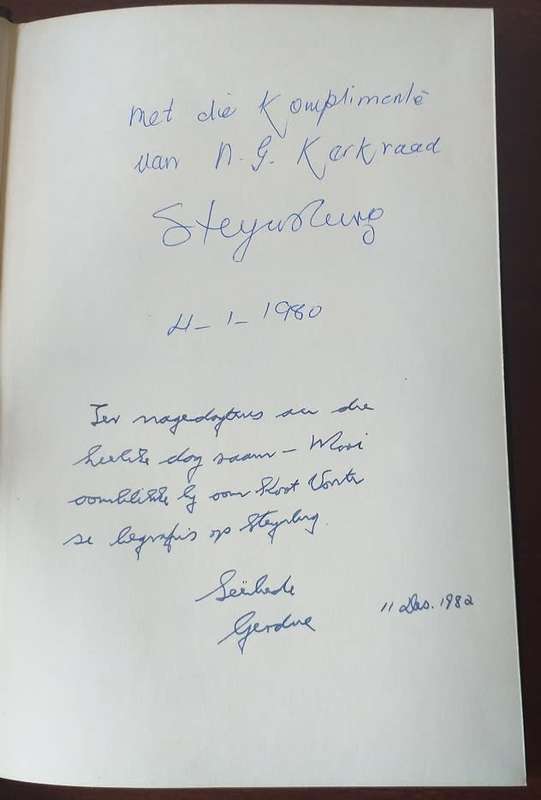 Met die Komplimente
van N. G. Kerkraad
Steynsburg
4-1-1980
Ter nagedagtenis aan die
heerlike dag saam - Mooi
oomblikke by oom Koot Vorster
se begrafnis op Steynsburg.
Seënbede
11 Des. 1982